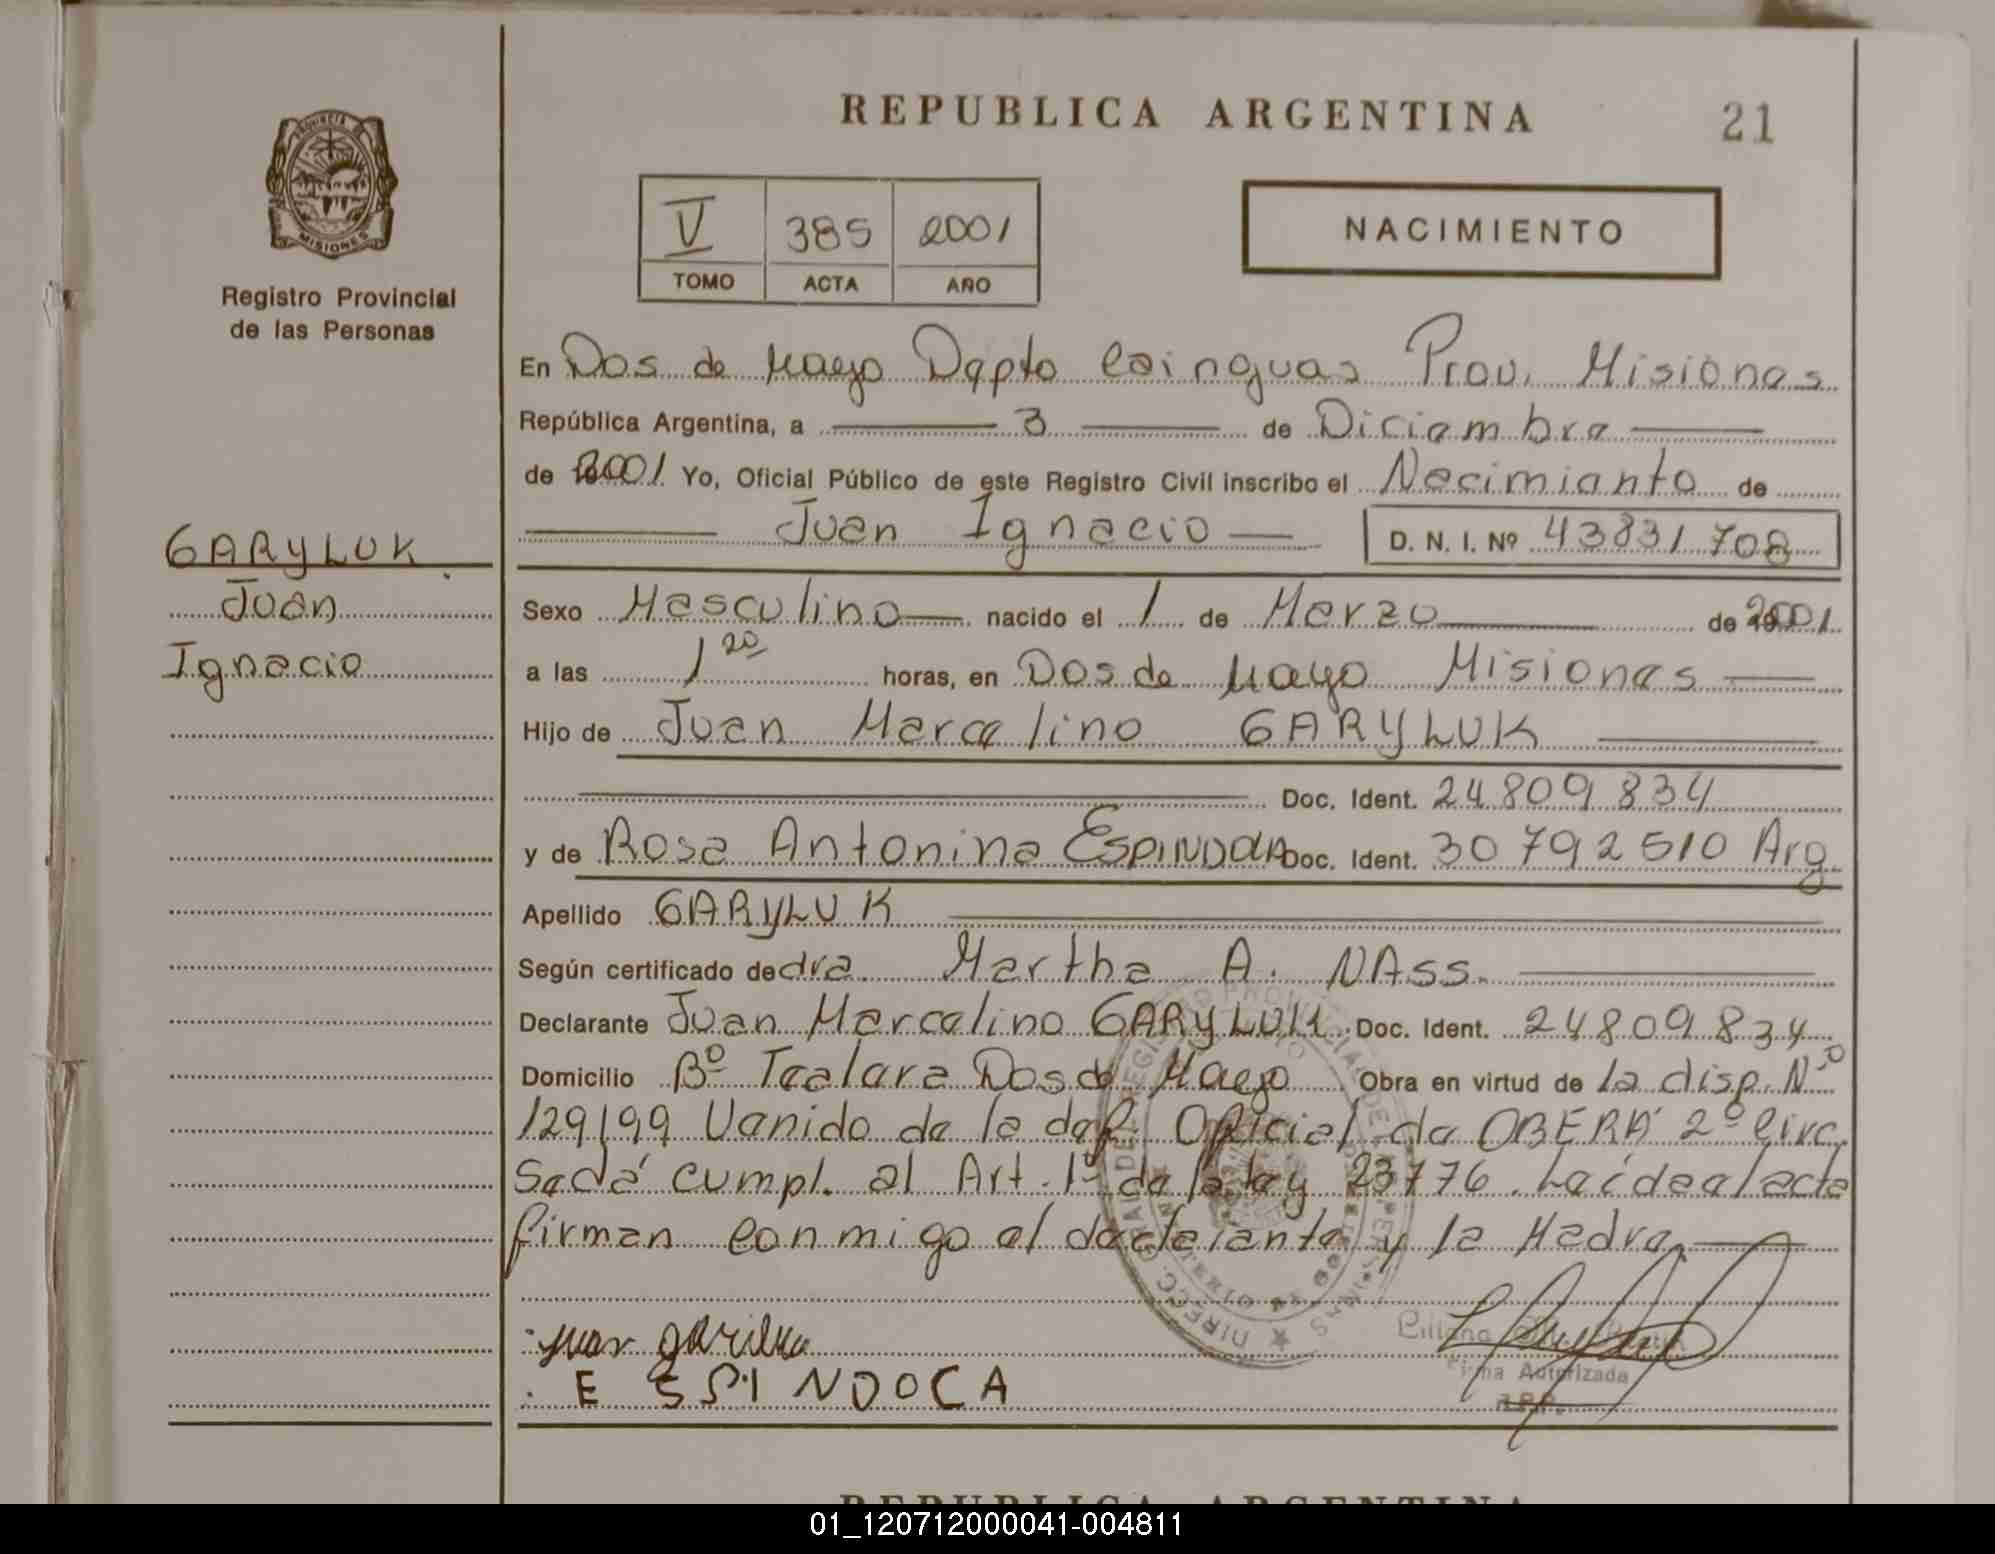 REPUBLICA ARGENTINA
21
PROVINCIA DE
MISIONES
Registro Provincial
de las Personas
V 385 2001
TOMO ACTA AÑO
NACIMIENTO
En Dos de Mayo Depto Cainguas Prov. Misiones
República Argentina, a 3 de Diciembre
de 2001 Yo, Oficial Público de este Registro Civil inscribo el Nacimiento de
Juan Ignacio D. N. I. Nº 43831708
GARYLUK
Juan
Ignacio
Sexo Masculino nacido el 1 de Marzo de 2001
a las 1 20 horas, en Dos de Mayo Misiones
Hijo de Juan Marcelino GARYLUK
Doc. Ident. 24809834
y de Rosa Antonina ESPINDOLA Doc. Ident. 30792510 Arg
Apellido GARYLUK
Según certificado de dra. Martha A. NAss.
Declarante Juan Marcelino GARYLUK Doc. Ident. 24809834
Domicilio Bº Dos de Mayo Obra en virtud de la disp. Nº
129/99 Venido de la del. Oficial de OBERÁ 2º Circ.
Sedá cumpl. al Art. 1º de la ley 23776. Leída el acta
firman conmigo el declarante y la Madre
Juan
ESPINDOCA
Firma Autorizada
R.P.P.
REPUBLICA ARGENTINA
01_120712000041-004811